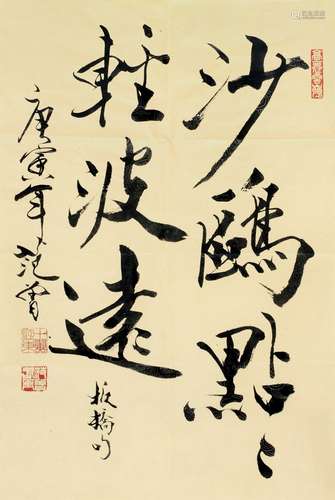 沙鷗點〻
輕波遠
板橋句
庚寅年范曾